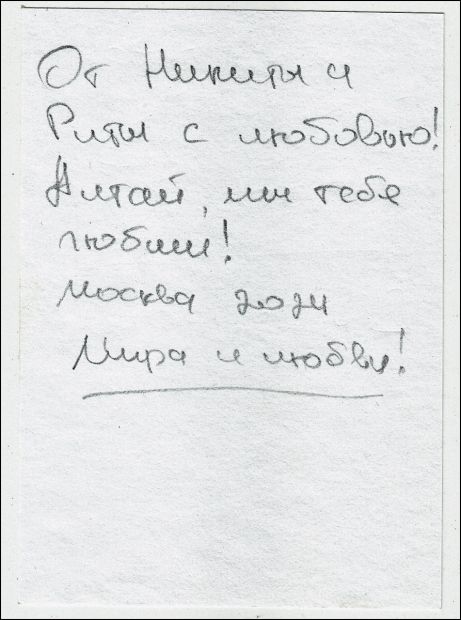 От Никиты и
Риты с любовью!
Алтай, мы тебя
любим!
Москва 2024
Мира и любви!